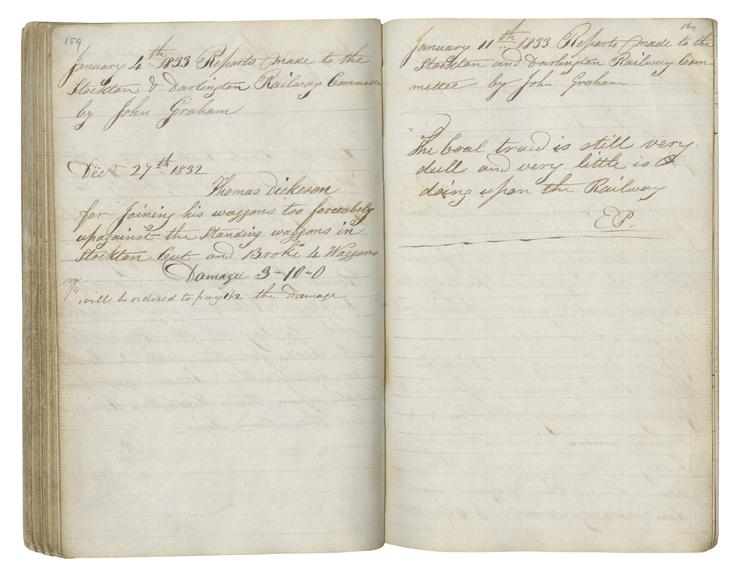 159
January 4th 1833 Reports made to the
Stockton & Darlington Railway Committee
by John Graham
Dect 27th 1832
Thomas Dickeson
for Joining his waggons too forceabely
upagainst the Standing waggons in
Stockton Cut and Broke 4 Waggons
Damage 3-10-0
will be ordered to pay 1/2 the Damage
160
January 11th 1833 Reports made to the
Stockton and Darlington Railway Com-
mettee by John Graham
The Coal traid is still very
dull and very little is
doing upon the Railway
EP.